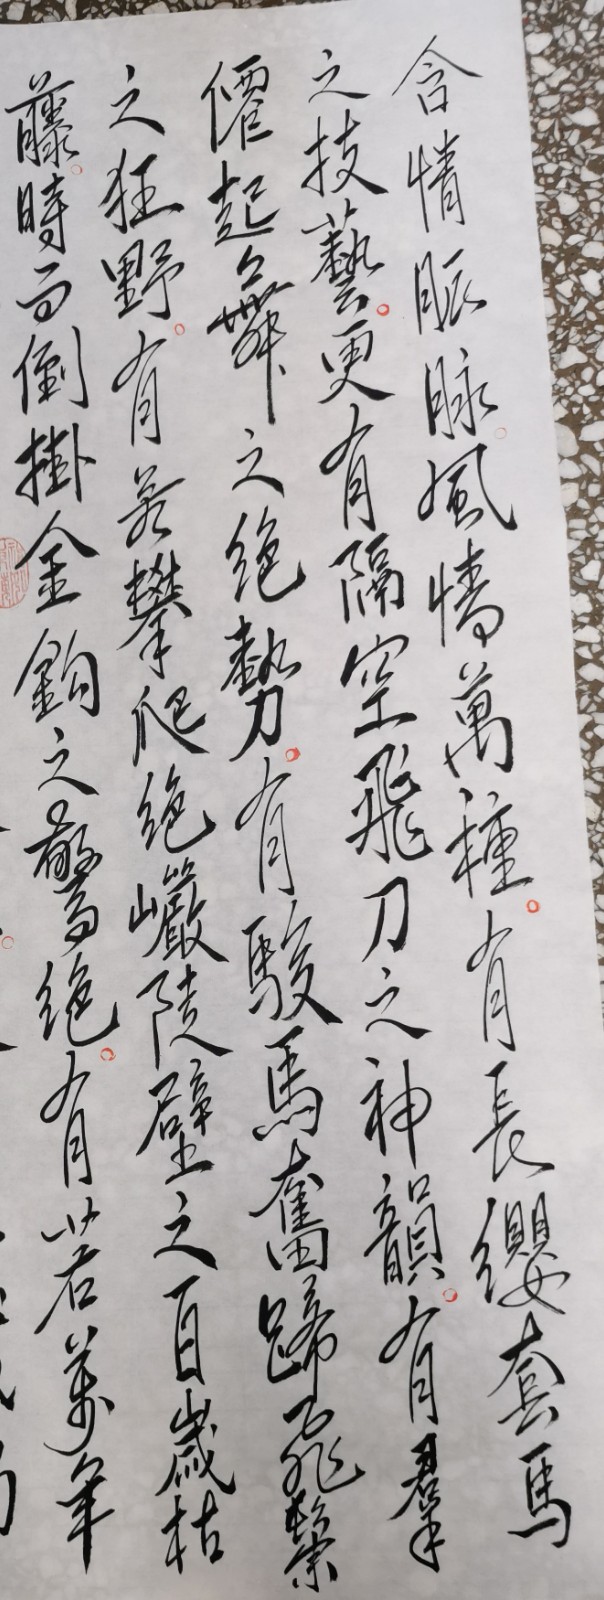 含情脈脉風情萬種有長纓套馬
之技藝更有隔空飛刀之神韻有羣
僊起舞之絶勢有駿馬奮蹄飛鬃
之狂野有若攀爬絶巖陡壁之百歲枯
藤時而倒掛金鈎之驚絶有若萬年